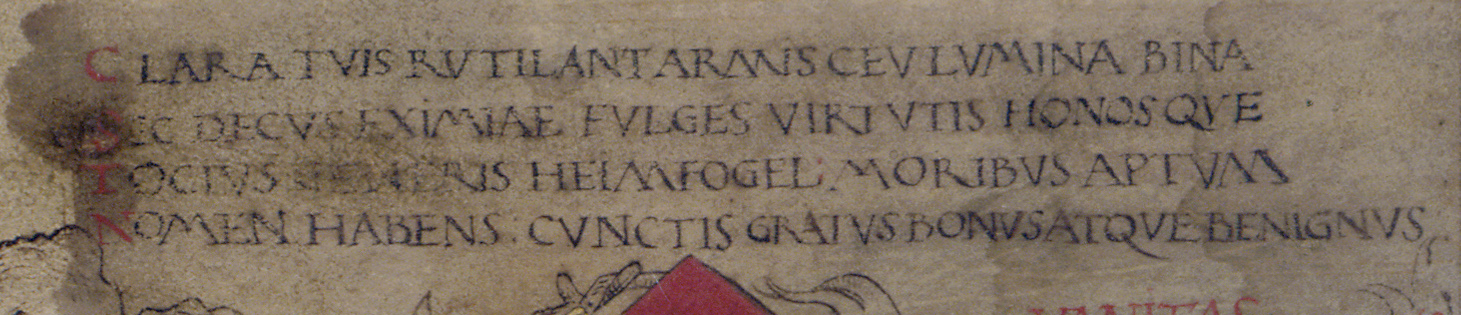 CLARA TVIS RVTILANT ARMIS CEV LVMINA BINA
SIC DECVS EXIMIAE FVLGES VIRTVTIS HONOSQVE
TOCIVS GENERIS HELMFOGEL: MORIBVS APTVM
NOMEN HABENS : CVNCTIS GRATVS BONVS ATQVE BENIGNVS